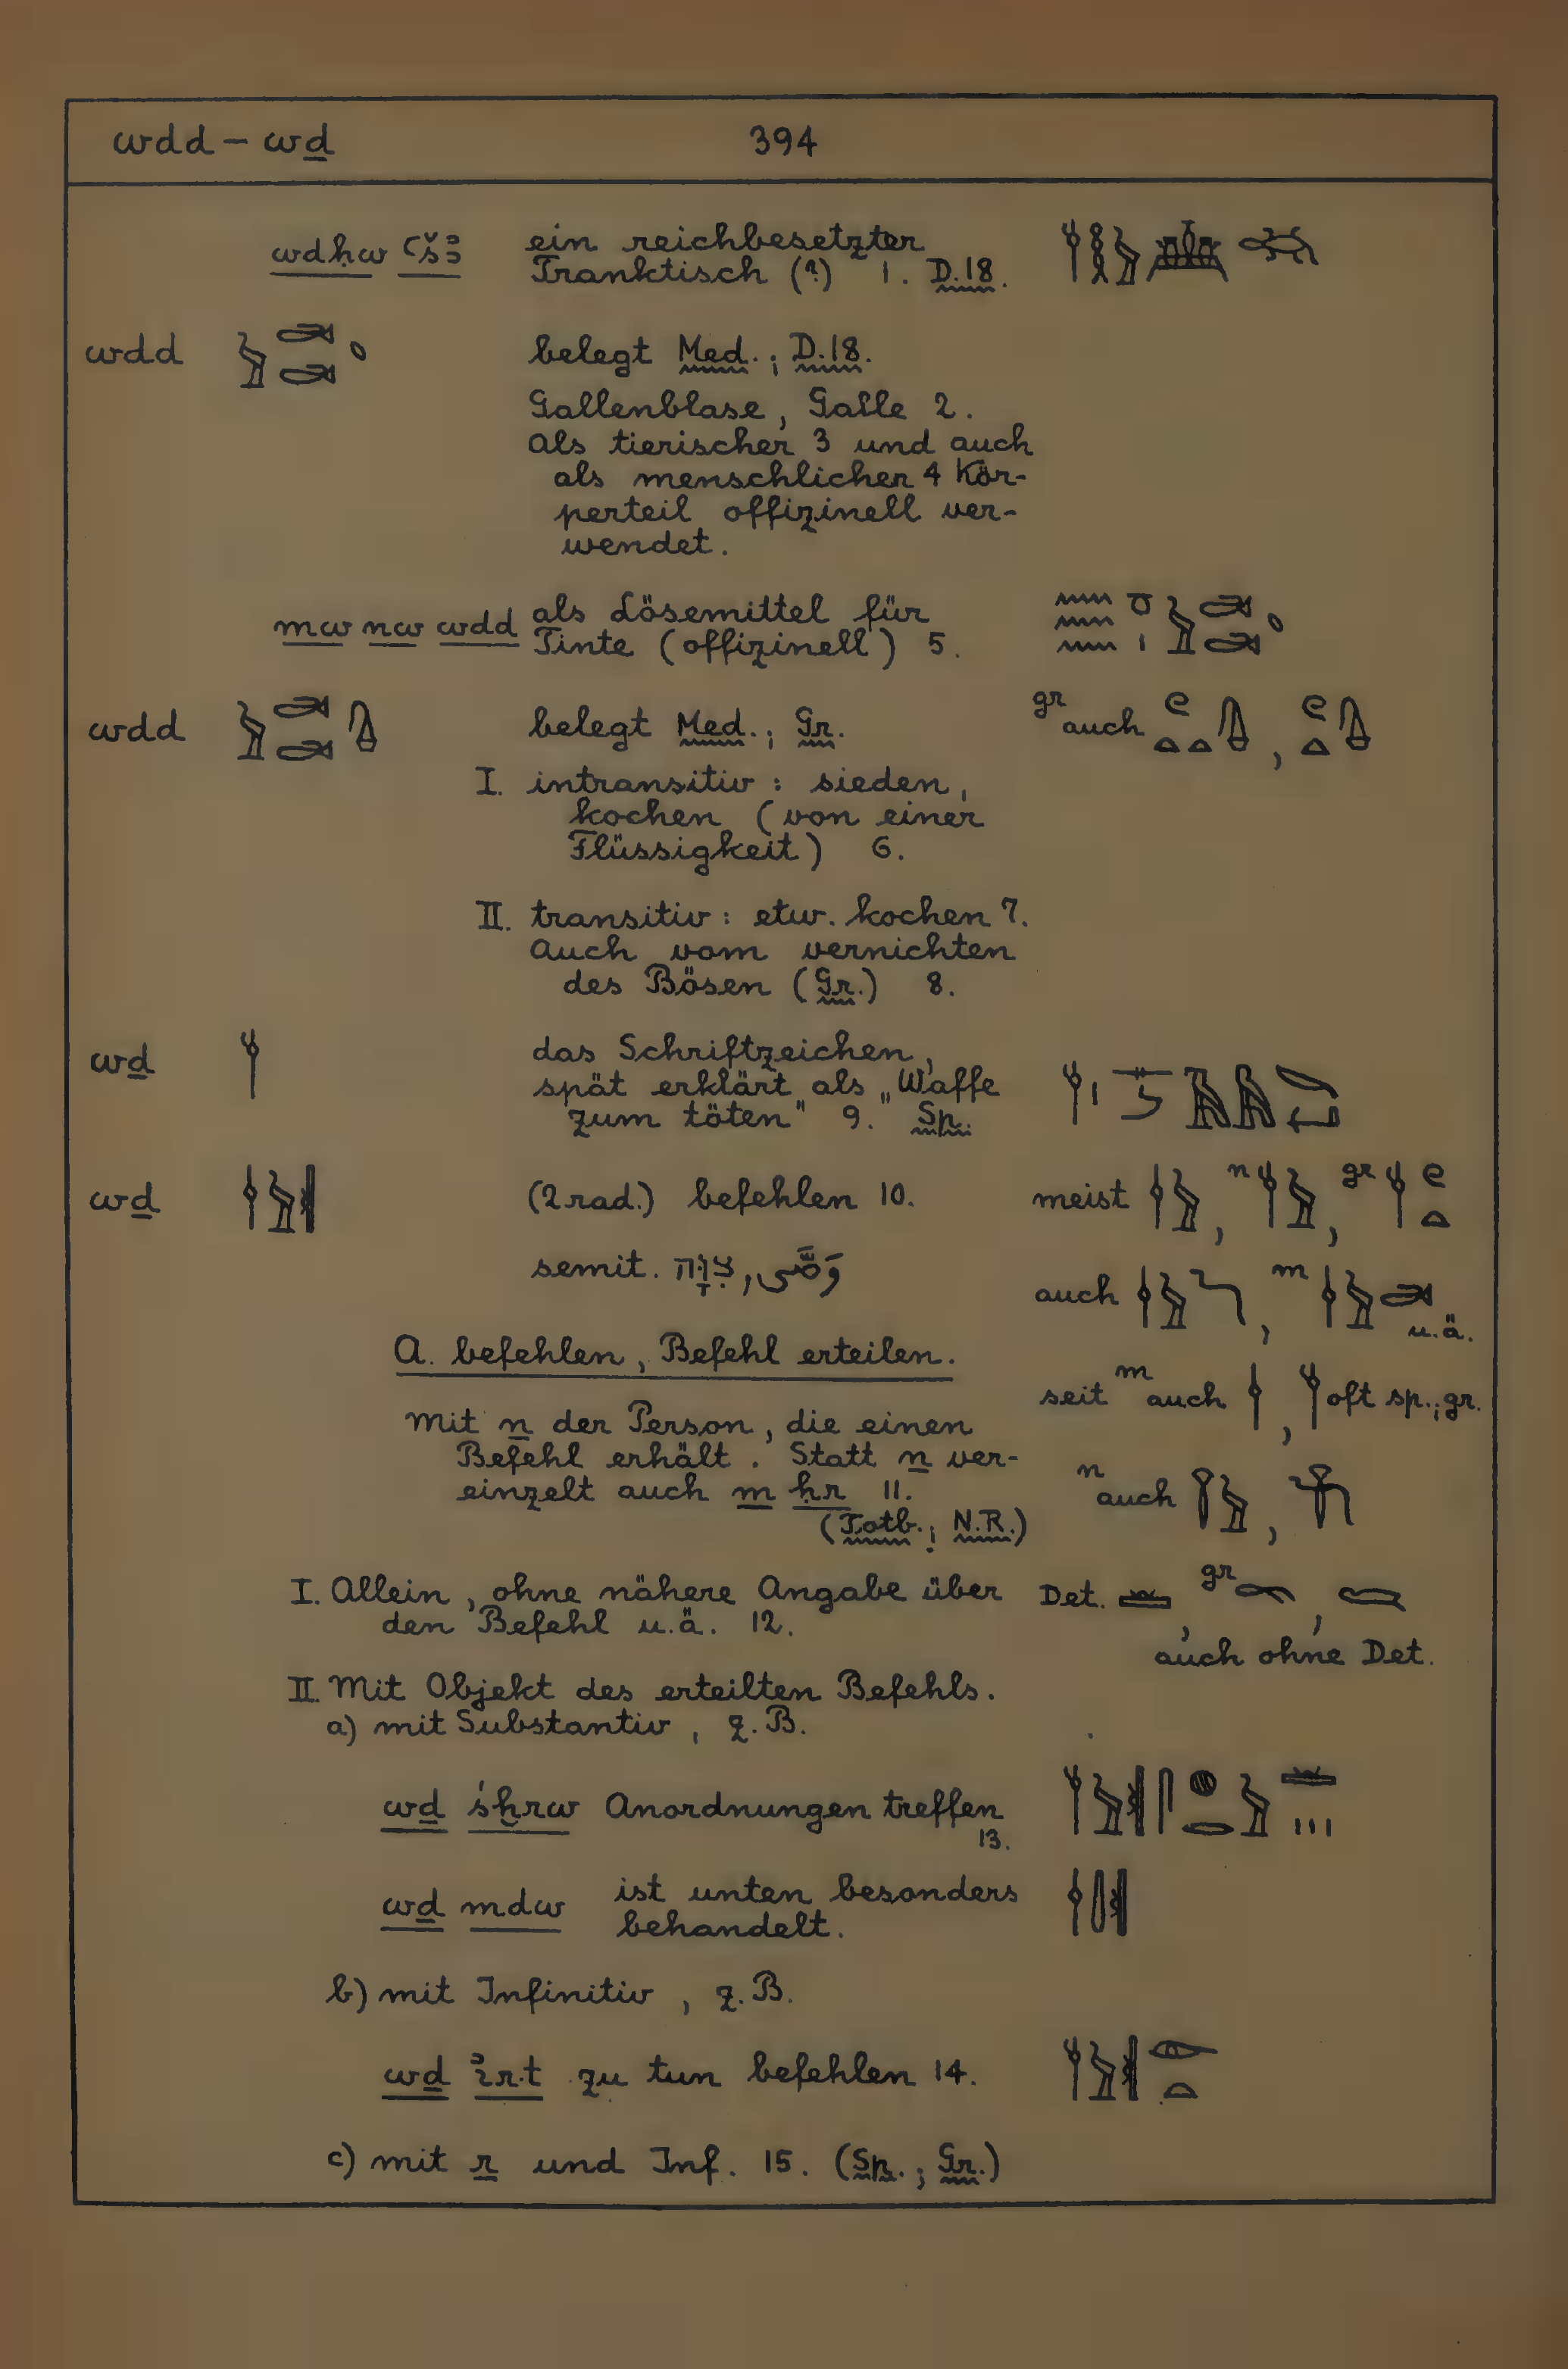 wdd – wḏ 394
wdḥw ꜥšꜣ ein reichbesetzter
Tranktisch (?) 1. D.18.
wdd belegt Med.; D.18.
Gallenblase, Galle 2.
Als tierischer 3 und auch
als menschlicher 4 Kör-
perteil offizinell ver-
wendet.
mw nw wdd als Lösemittel für
Tinte (offizinell) 5.
wdd belegt Med.; Gr. gr auch ,
I. intransitiv: sieden,
kochen (von einer
Flüssigkeit) 6.
II. transitiv: etw. kochen 7.
Auch vom vernichten
des Bösen (Gr.) 8.
wḏ das Schriftzeichen,
spät erklärt als „Waffe
zum töten" 9. Sp.
wḏ (2 rad.) befehlen 10. meist , n , gr
semit. צִוָּה, وَصَّى
auch , m u.ä.
A. befehlen, Befehl erteilen.
seit m auch , oft sp.; gr.
Mit n der Person, die einen
Befehl erhält. Statt n ver-
einzelt auch m ḥr 11.
(Totb.; N.R.)
n auch ,
I. Allein, ohne nähere Angabe über
den Befehl u.ä. 12.
Det. , gr ,
auch ohne Det.
II. Mit Objekt des erteilten Befehls.
a) mit Substantiv, z.B.
wḏ śḫrw Anordnungen treffen
13.
wḏ mdw ist unten besonders
behandelt.
b) mit Infinitiv, z.B.
wḏ ỉr.t zu tun befehlen 14.
c) mit r und Inf. 15. (Sp.; Gr.)